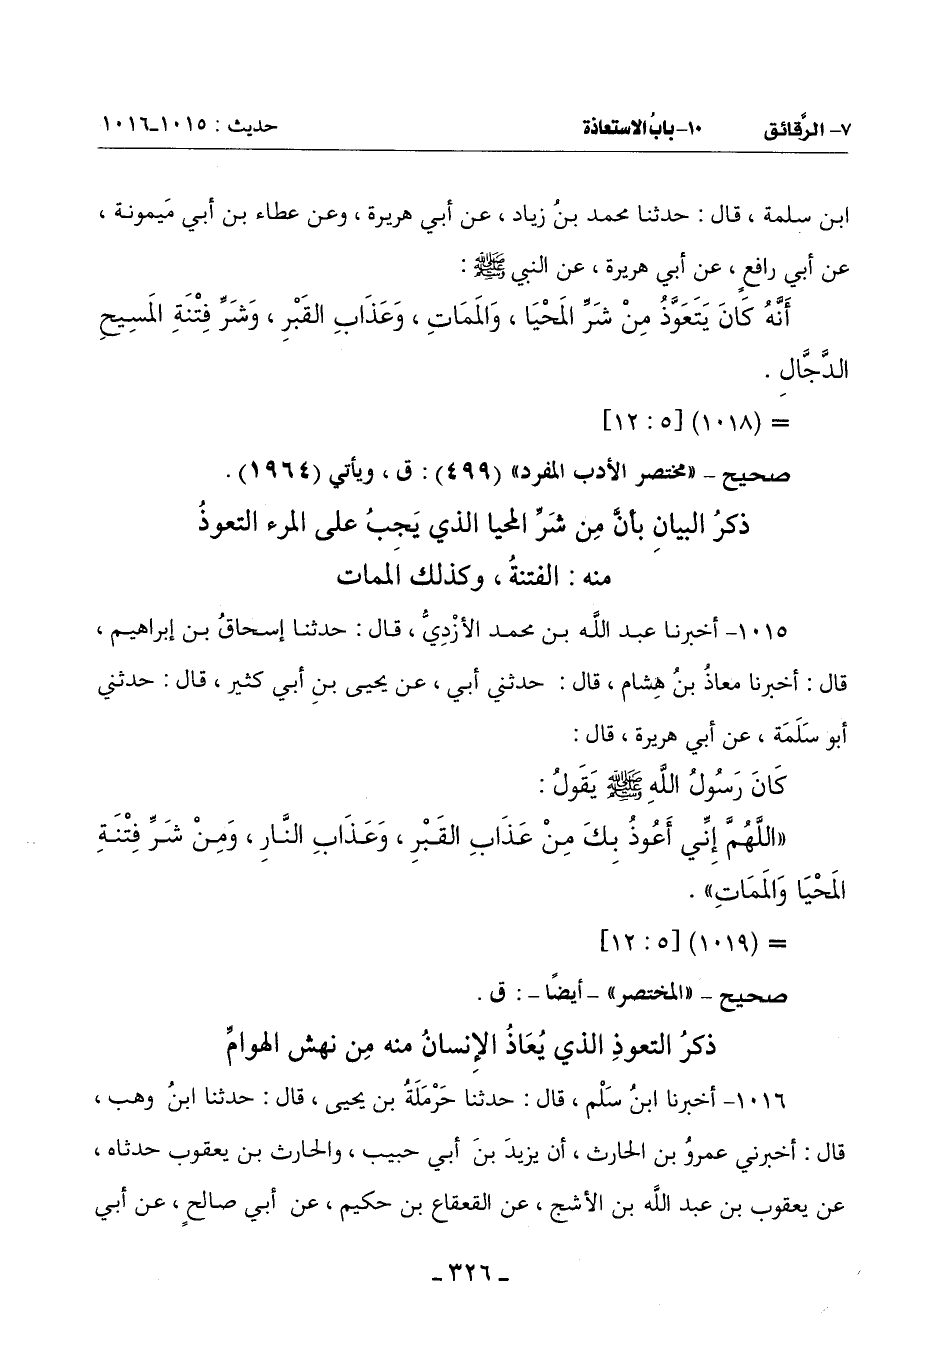 ٧- الرَّقائق ١٠-بابُ الاستعاذة حديث : ١٠١٥-١٠١٦
ابن سلمة ، قال : حدثنا محمد بنُ زياد ، عن أبي هريرة ، وعن عطاء بن أبي مَيمونة ،
عن أبي رافعٍ ، عن أبي هريرة ، عن النبي ﷺ :
أَنَّهُ كَانَ يَتَعَوَّذُ مِنْ شَرِّ المَحْيَا ، وَالمَمَاتِ ، وَعَذَابِ القَبْرِ ، وَشَرِّ فِتْنَةِ المَسِيحِ
الدَّجَّالِ .
= (١٠١٨) [٥ : ١٢]
صحيح - «مختصر الأدب المفرد» (٤٩٩) : ق ، ويأتي (١٩٦٤) .
ذكرُ البيانِ بأنَّ مِن شَرِّ المحيا الذي يَجِبُ على المرء التعوذُ
منه : الفتنةُ ، وكذلك الممات
١٠١٥- أخبرنا عبد اللَّه بن محمد الأزْدِيُّ ، قال : حدثنا إسحاقُ بن إبراهيم ،
قال : أخبرنا معاذُ بنُ هِشام ، قال : حدثني أبي ، عن يحيى بنِ أبي كثير ، قال : حدثني
أبو سَلَمَة ، عن أبي هريرة ، قال :
كَانَ رَسُولُ اللَّهِ ﷺ يَقولُ :
«اللَّهُمَّ إِنِّي أَعُوذُ بِكَ مِنْ عَذَابِ القَبْرِ ، وَعَذَابِ النَّارِ ، وَمِنْ شَرِّ فِتْنَةِ
المَحْيَا وَالمَمَاتِ» .
= (١٠١٩) [٥ : ١٢]
صحيح - «المختصر» -أيضًا- : ق .
ذكرُ التعوذِ الذي يُعَاذُ الإِنسانُ منه مِن نهش الهوامِّ
١٠١٦- أخبرنا ابنُ سَلْم ، قال : حدثنا حَرْمَلَةُ بن يحيى ، قال : حدثنا ابنُ وهب ،
قال : أخبرني عمروُ بن الحارث ، أن يزيدَ بنَ أبي حبيب ، والحارث بن يعقوب حدثاه ،
عن يعقوب بن عبد اللَّه بن الأشج ، عن القعقاع بن حكيم ، عن أبي صالحٍ ، عن أبي
- ٣٢٦ -